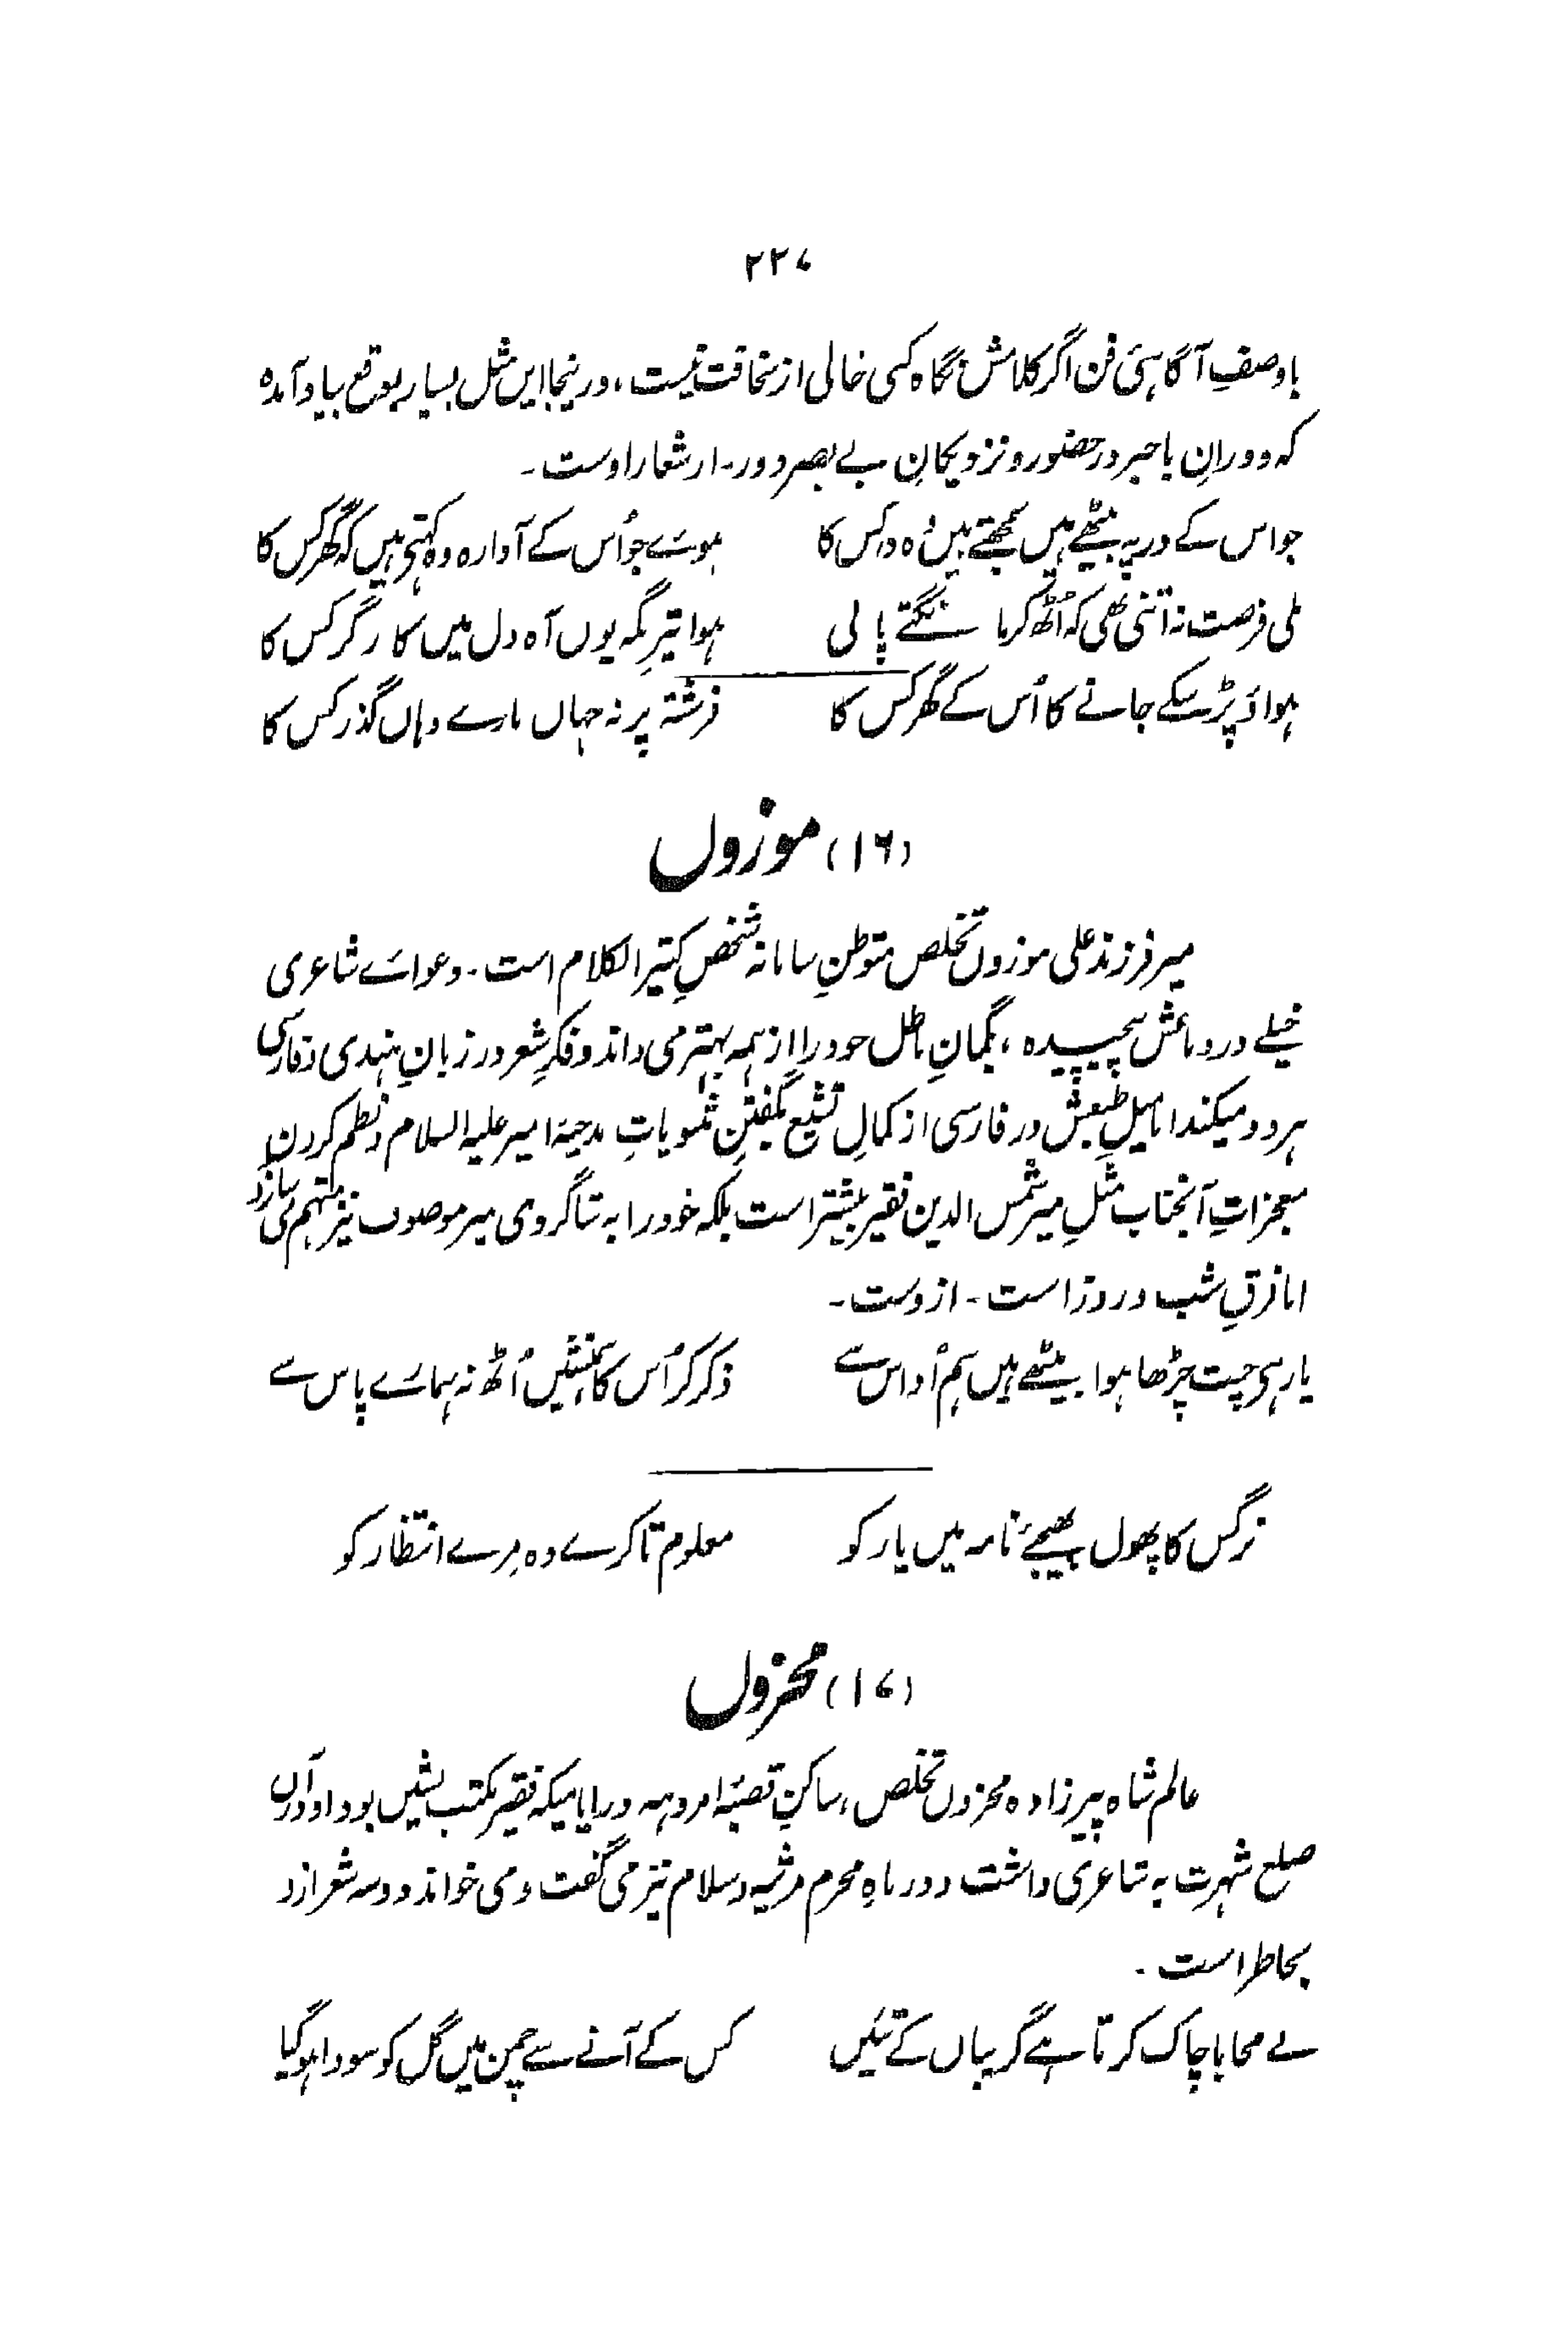 ۲۲۷
باوصفِ آگاہئ فن اگر کلامش نگاہ کمی خالی از سخافت نیست، دریںجا ایں مثل بسیار بموقع بیاد آمدہ
کہ دورانِ باخبر در حضور و نزدیکانِ بے بصر دور۔ ار شعار اوست۔
جو اس کے در پہ بیٹھے ہیں سمجھتے ہیں وُہ در کس کا ہوئے جو اُس کے آوارہ وہ کہتی ہیں کہ گھر کس کا
ملی فرصت نہ اتنی بھی کہ اُٹھ کر مانگتے پانی ہوا تیرِ نگہ یوں آہ دل میں کارگر کس کا
ہوا ذ پڑ سکے جانے کا اُس کے گھر کس کا فرشتہ پر نہ جہاں مارے وہاں گذر کس کا
(۱۶) موزوں
میر فرزند علی موزوں تخلص متوطنِ سامانہ شخصِ کثیر الکلام است۔ دعوائے شاعری
خیلے در دماغش پیچیدہ، بگمانِ باطل خود را از ہمہ بہتر می داند و فکرِ شعر در زبانِ ہندی و فارسی
ہر دو میکند اما میلِ طبعش در فارسی از کمالِ تشیع بگفتنِ مثنویاتِ مدحیۂ امیر علیہ السلام و نظم کردنِ
معجزاتِ آنجناب مثلِ میر شمس الدین فقیر بیشتر است بلکہ خود را بہ شاگردی میر موصوف نیز متہم می سازد
اما فرقِ شب و روز است۔ از وست۔
یار ہی چت چڑھا ہوا بیٹھے ہیں ہم اُداس سے ذکر کر اُس کا ہمنشیں اُٹھ نہ ہمارے پاس سے
نرگس کا پھول بھیجئے نامہ میں یار کو معلوم تا کرے وہ مِرے انتظار کو
(۱۷) محزوں
عالم شاہ پیرزادہ محزوں تخلص، ساکنِ قصبۂ امروہہ در ایامیکہ فقیر مکتب نشیں بود او در آں
ضلع شہرت بہ شاعری داشت و در ماہِ محرم مرثیہ و سلام نیز می گفت و می خواند دو سہ شعر ازو
بخاطر است۔
بے محابا چاک کرتا ہے گریباں کے تئیں کس کے آنے سے چمن میں گل کو سودا ہو گیا